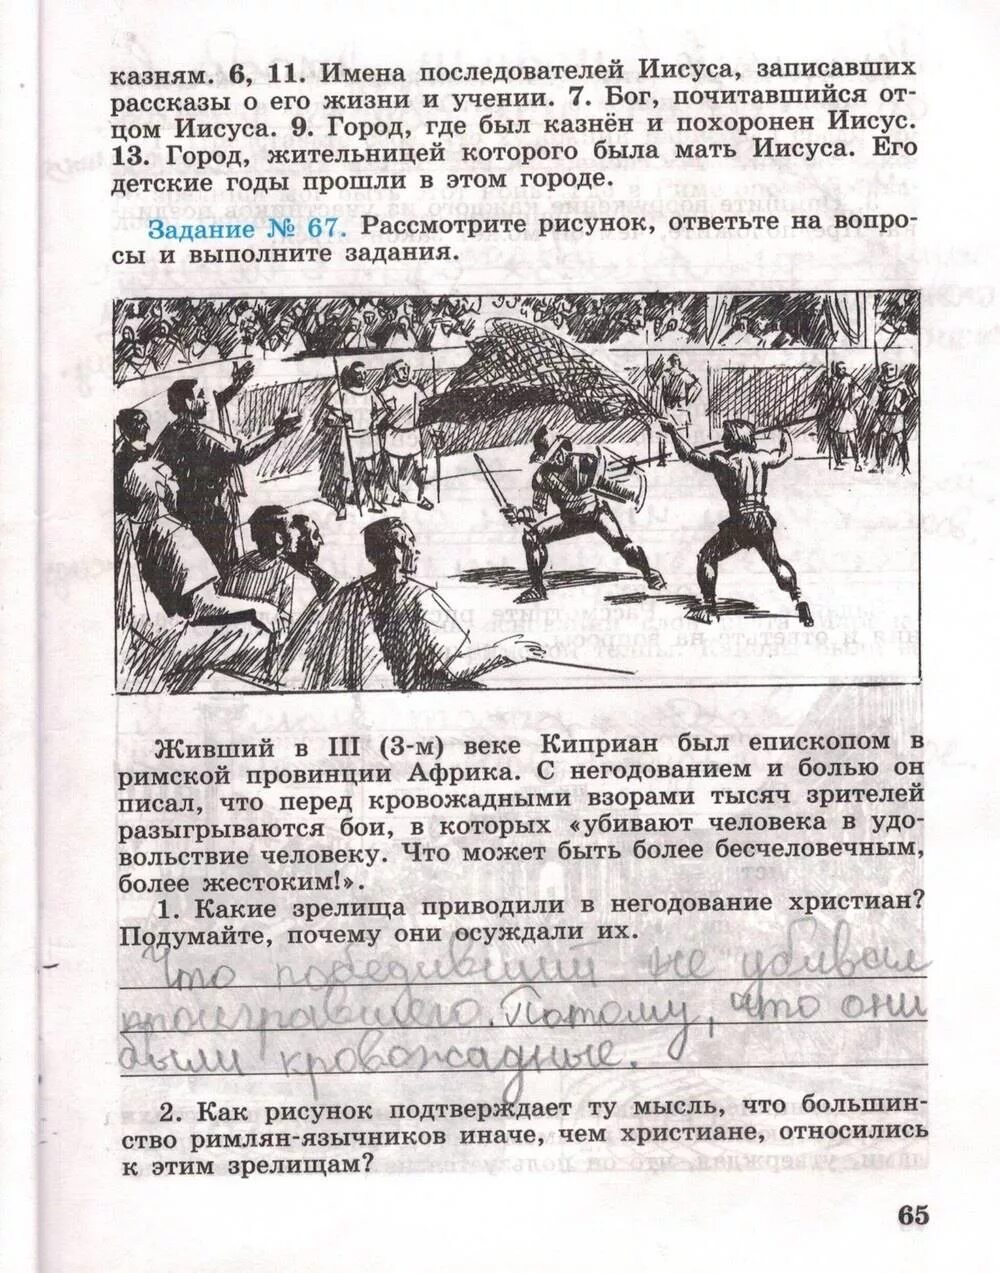 казням. 6, 11. Имена последователей Иисуса, записавших
рассказы о его жизни и учении. 7. Бог, почитавшийся от-
цом Иисуса. 9. Город, где был казнён и похоронен Иисус.
13. Город, жительницей которого была мать Иисуса. Его
детские годы прошли в этом городе.
Задание № 67. Рассмотрите рисунок, ответьте на вопро-
сы и выполните задания.
Живший в III (3-м) веке Киприан был епископом в
римской провинции Африка. С негодованием и болью он
писал, что перед кровожадными взорами тысяч зрителей
разыгрываются бои, в которых «убивают человека в удо-
вольствие человеку. Что может быть более бесчеловечным,
более жестоким!».
1. Какие зрелища приводили в негодование христиан?
Подумайте, почему они осуждали их.
Что победивший не убивал
проигравшего. Потому, что они
были кровожадные.
2. Как рисунок подтверждает ту мысль, что большин-
ство римлян-язычников иначе, чем христиане, относились
к этим зрелищам?
65